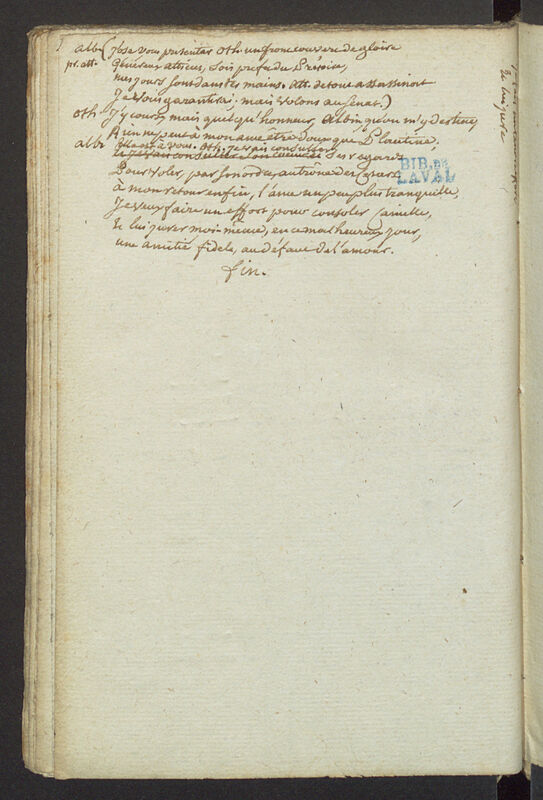 alb. (j'ose vous presenter Oth. un front couvert de gloire
pr. att. Genereux atticus, sois prefet du Prétoire,
mes jours sont dans tes mains. Att. de tout assassinat
Je vous garantirai. mais volons au senat.)
Oth. J'y cours, mais quelqu honneur, Albin, qu'on m'y destine,
Rien ne peut à mon ame être doux que Plautine;
alb. allons à vous. Oth. Je vais consulter
et je vais consulter son ses regards
Pour voler, par son ordre, au trône des Cesars
à mon retour enfin, l'ame un peu plus tranquille,
Je veux faire un effort pour consoler Camille,
Et lui jurer moi-meme, en ce malheureux jour,
une amitié fidele, au defaut de l'amour.
fin.
BIB. DE
LAVAL
Et lui jurer